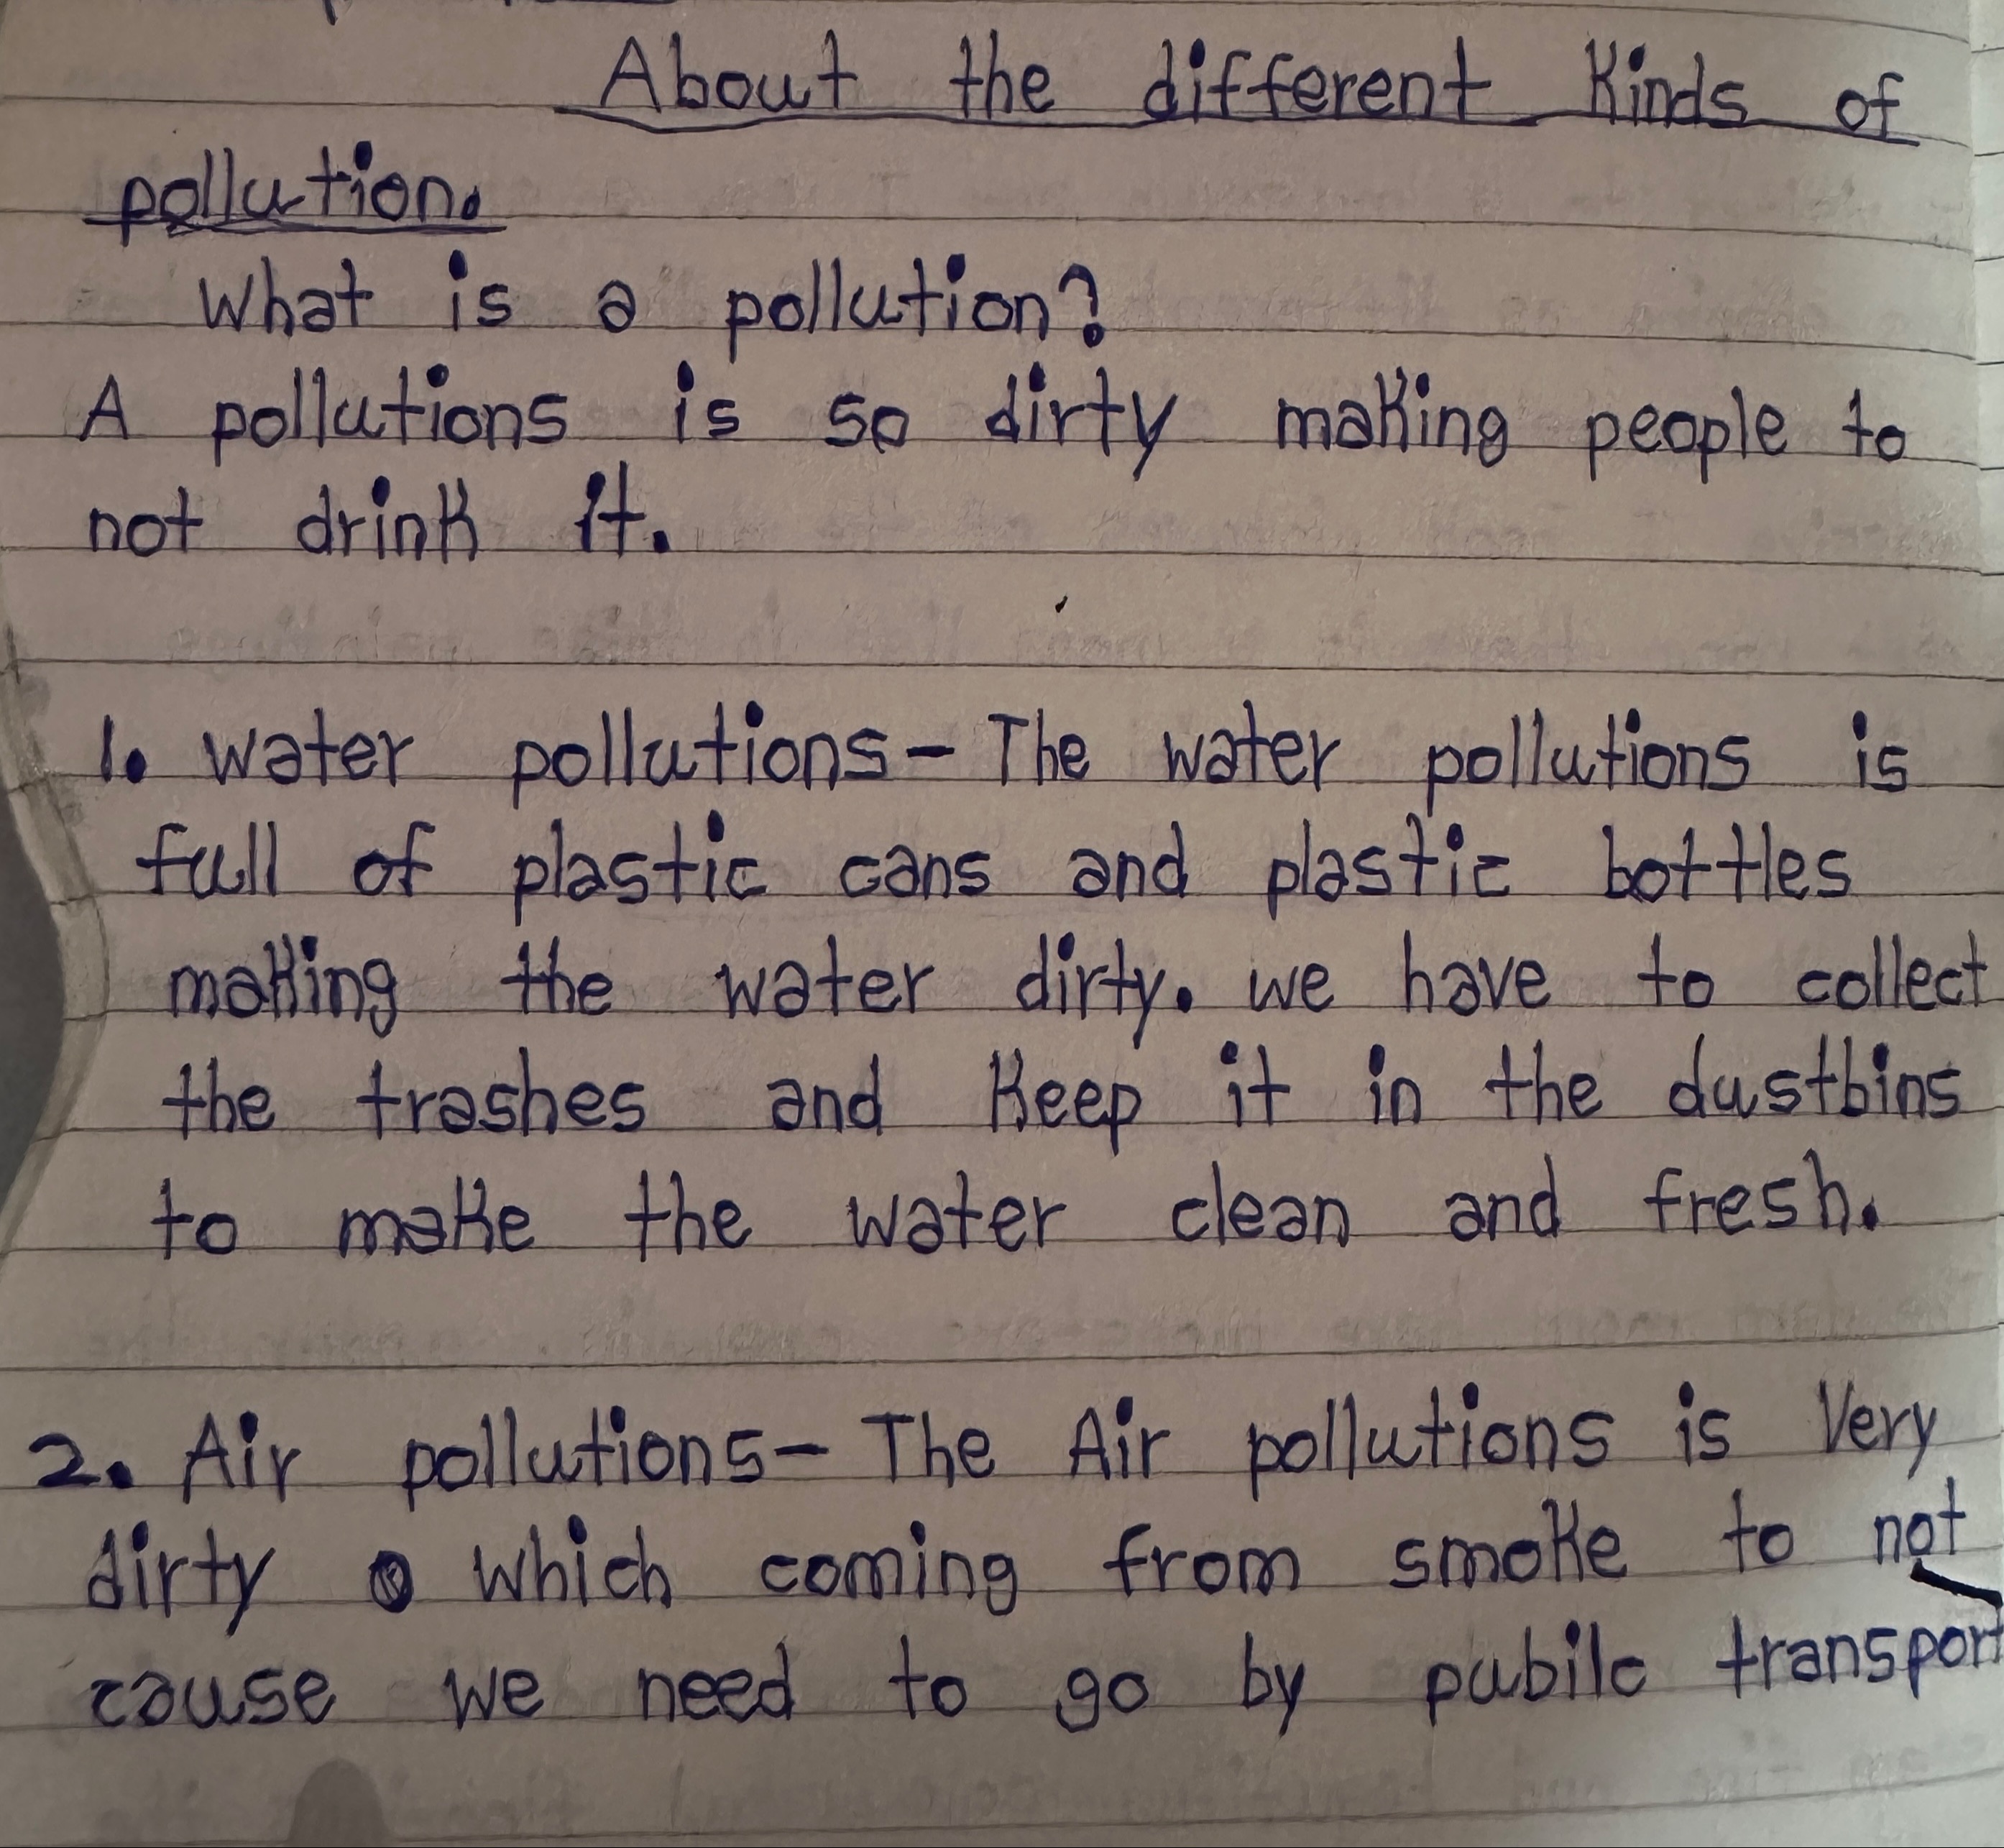 About the different Kinds of
pollution.
What is a pollution?
A pollutions is so dirty making people to
not drink it.
1. water pollutions - The water pollutions is
full of plastic cans and plastic bottles
making the water dirty. we have to collect
the trashes and Keep it in the dustbins
to make the water clean and fresh.
2. Air pollutions - The Air pollutions is Very
dirty which coming from smoke to not
cause we need to go by pubilc transport